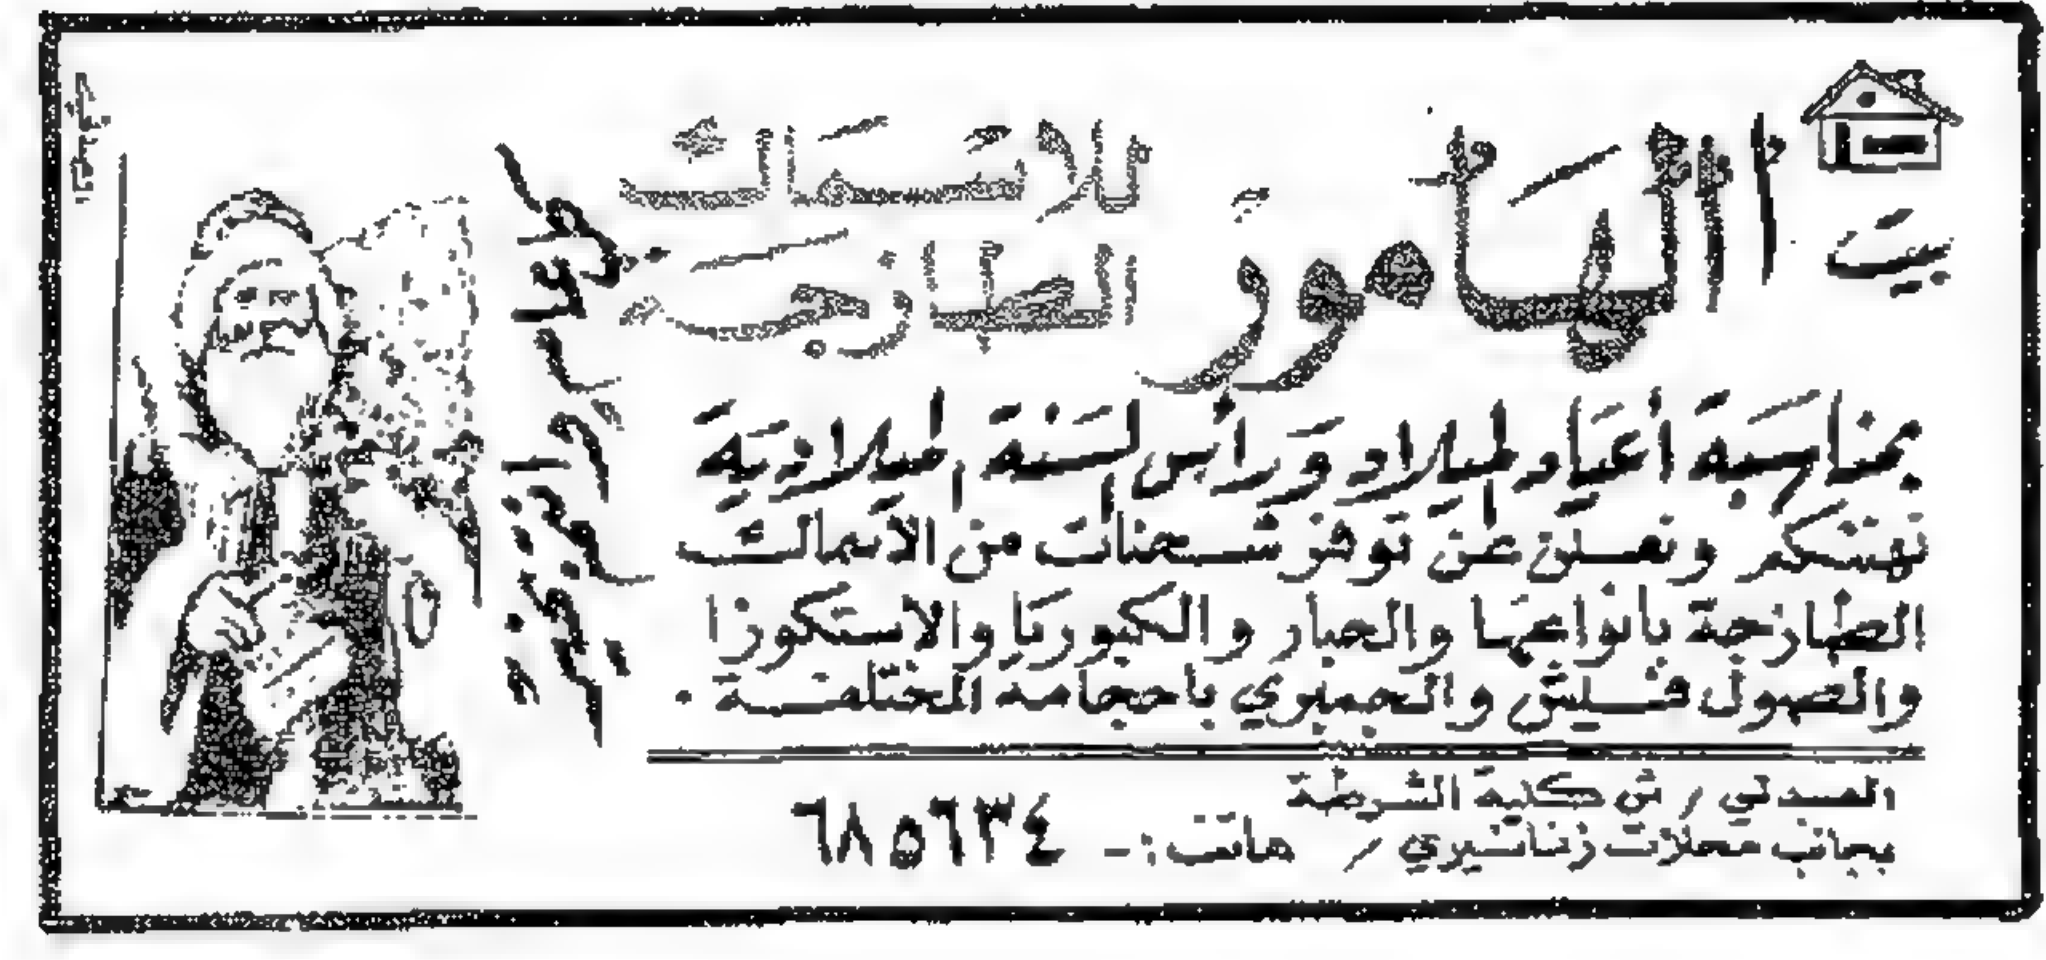 بيت الهامور
للاسماك
الطازجة
بمناسبة أعياد الميلاد ورأس السنة الميلادية
نهنئكم ونعلن عن توفر شحنات من الاسماك
الطازجة بانواعها والحبار والكبوريا والاستكوزا
والصول فليش والجمبري باحجامه المختلفة .
العبدلي / ش كلية الشرطة
بجانب محلات زنانيري / هاتف :- ٦٨٥٦٣٤